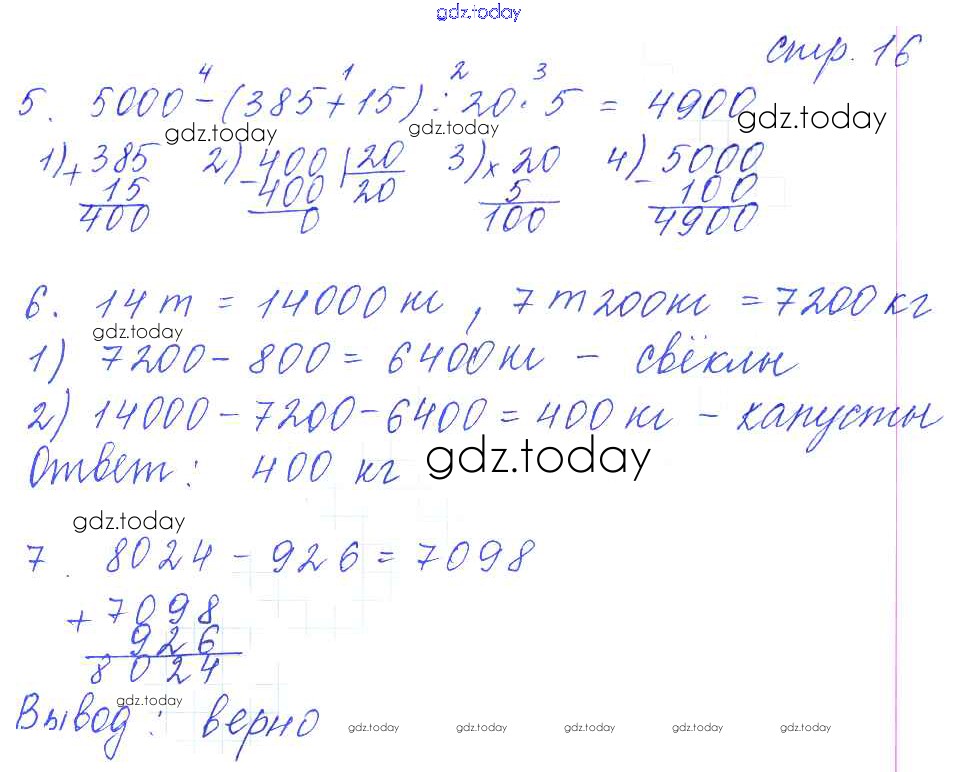 gdz.today
стр. 16
4 1 2 3
5. 5000 - (385 + 15) : 20 · 5 = 4900
gdz.today gdz.today gdz.today
1) + 385 2) - 400 | 20 3) × 20 4) - 5000
15 400 20 5 100
400 0 100 4900
6. 14 т = 14000 кг, 7 т 200 кг = 7200 кг
gdz.today
1) 7200 - 800 = 6400 кг - свёклы
2) 14000 - 7200 - 6400 = 400 кг - капусты
Ответ: 400 кг gdz.today
gdz.today
7. 8024 - 926 = 7098
+ 7098
926
8024
gdz.today
Вывод: верно
gdz.today gdz.today gdz.today gdz.today